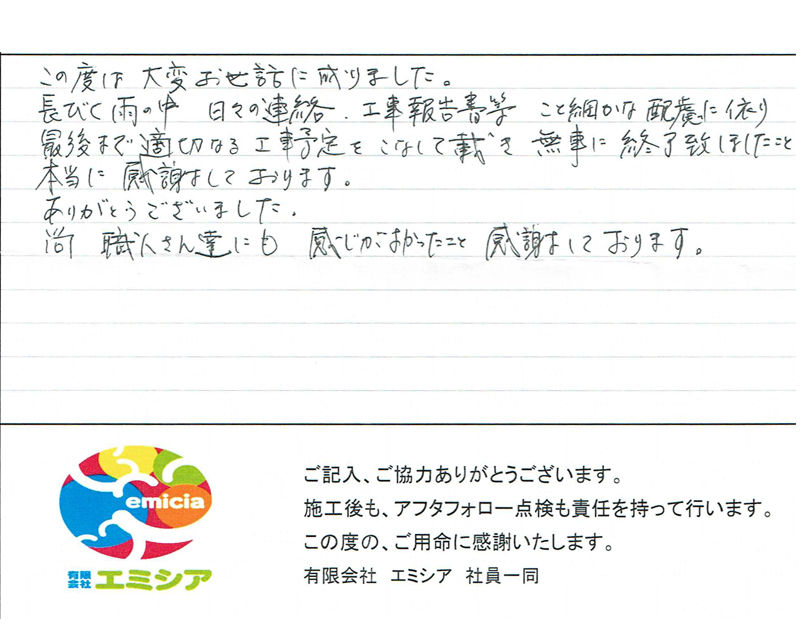 この度は 大変お世話に成りました。
長びく雨の中 日々の連絡、工事報告書等 こと細かな配慮に依り
最後まで適切なる工事予定をこなして載き 無事に終了致しましたこと
本当に感謝しております。
ありがとうございました。
尚 職人さん達にも 感じがよかったこと 感謝しております。
emicia
有限会社 エミシア
ご記入、ご協力ありがとうございます。
施工後も、アフタフォロー点検も責任を持って行います。
この度の、ご用命に感謝いたします。
有限会社 エミシア 社員一同